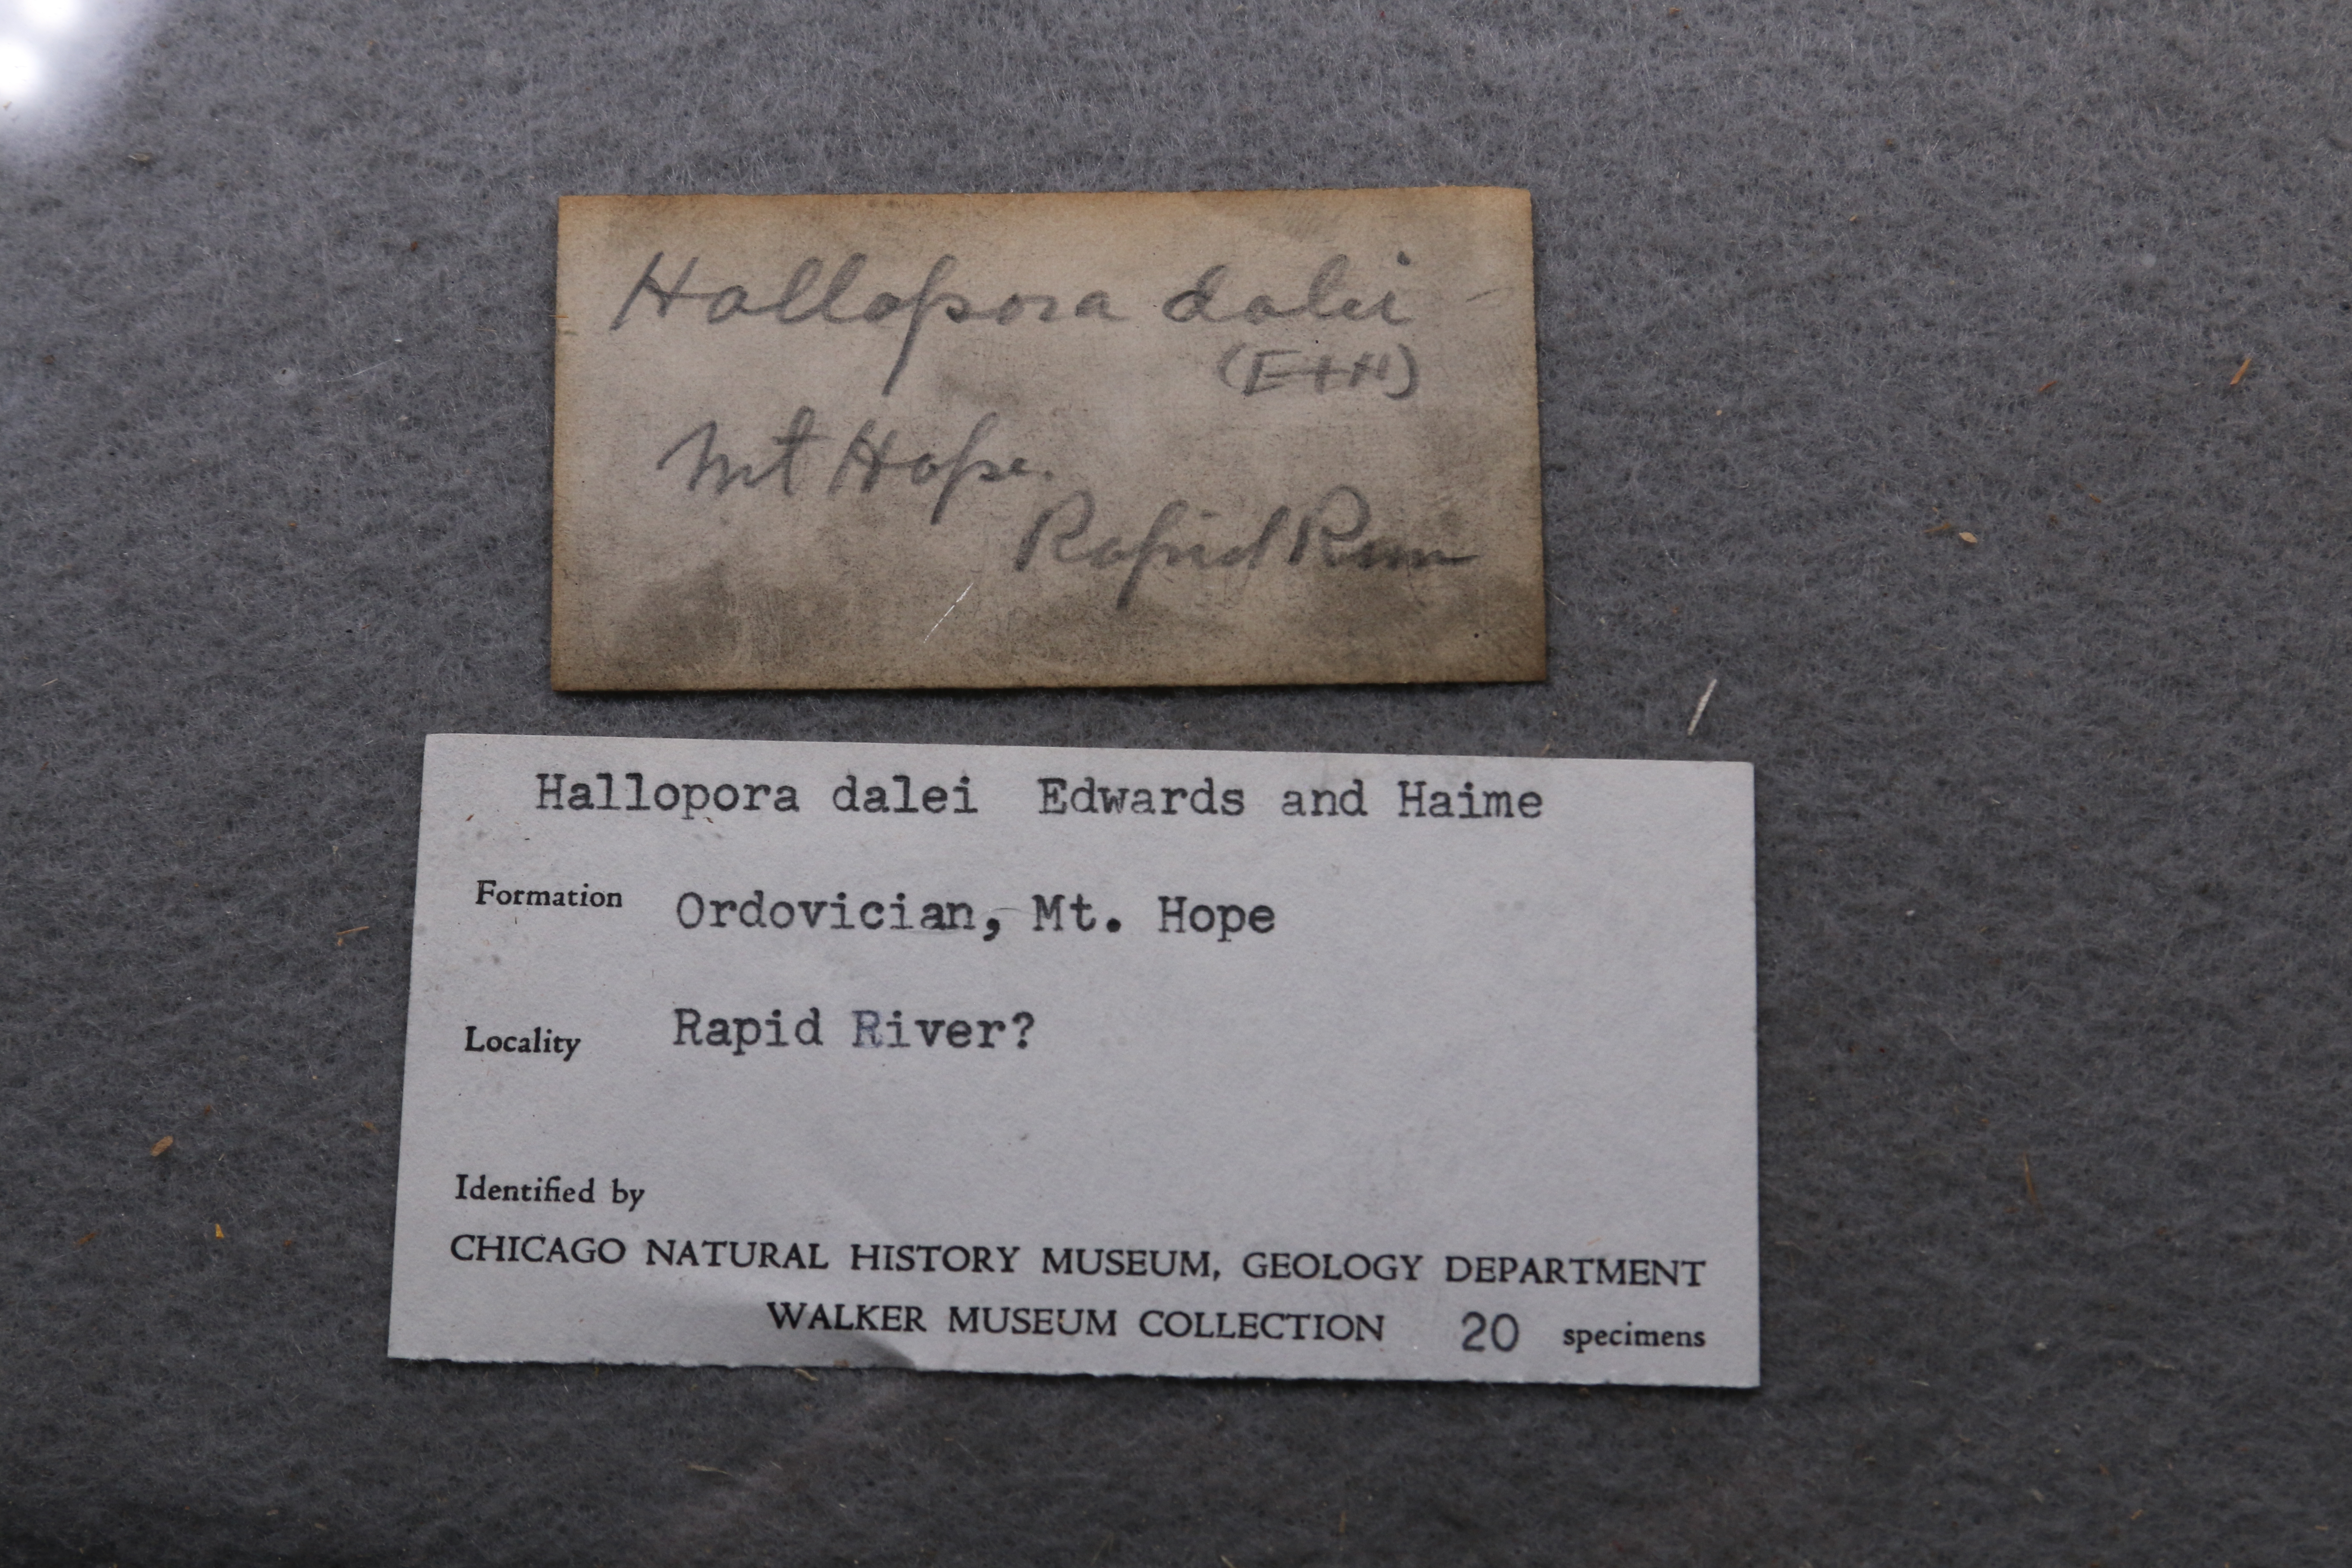 Hallopora dalei
(E+H)
Mt Hope.
Rapid Run
Hallopora dalei Edwards and Haime
Formation Ordovician, Mt. Hope
Locality Rapid River?
Identified by
CHICAGO NATURAL HISTORY MUSEUM, GEOLOGY DEPARTMENT
WALKER MUSEUM COLLECTION 20 specimens